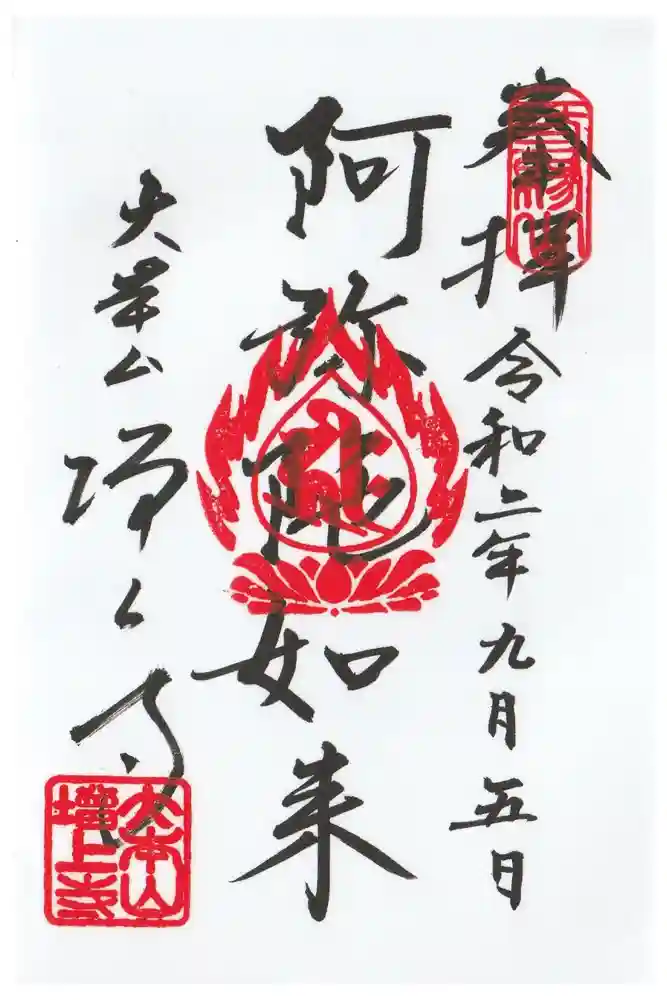 奉拝 令和二年九月五日
阿弥陀如来
大本山 増上寺
大本山
增上寺